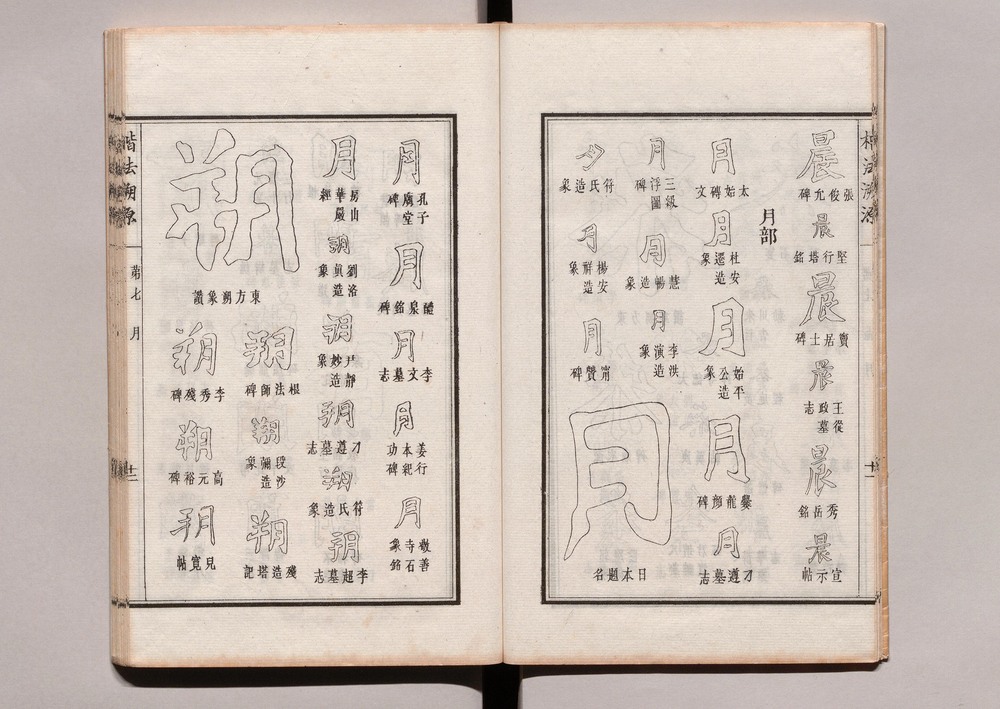 楷法溯源
十一
晨 張俊允碑
晨 堅行塔銘
晨 竇居士碑
晨 王從政墓志
晨 秀岳銘
晨 宣示帖
月部
月 太始磚文
月 杜安遷造象
月 始平公造象
月 爨龍顏碑
月 刁遵墓志
月 三級浮圖碑
月 慧暢造象
月 李洪演造象
月 日本題名
月 符氏造象
月 楊安祥造象
月 甯贊碑
月 孔子廟堂碑
月 醴泉銘碑
月 李文墓志
月 姜行本紀功碑
月 敬善寺石象銘
月 房山華嚴經
朔 劉洛眞造象
朔 尹靜妙造象
朔 刁遵墓志
朔 符氏造象
朔 李超墓志
朔 東方朔象讚
朔 根法師碑
朔 段沙彌造象
朔 殘造塔記
朔 李秀殘碑
朔 高元裕碑
朔 兒寬帖
楷法溯源
第七 月
十二